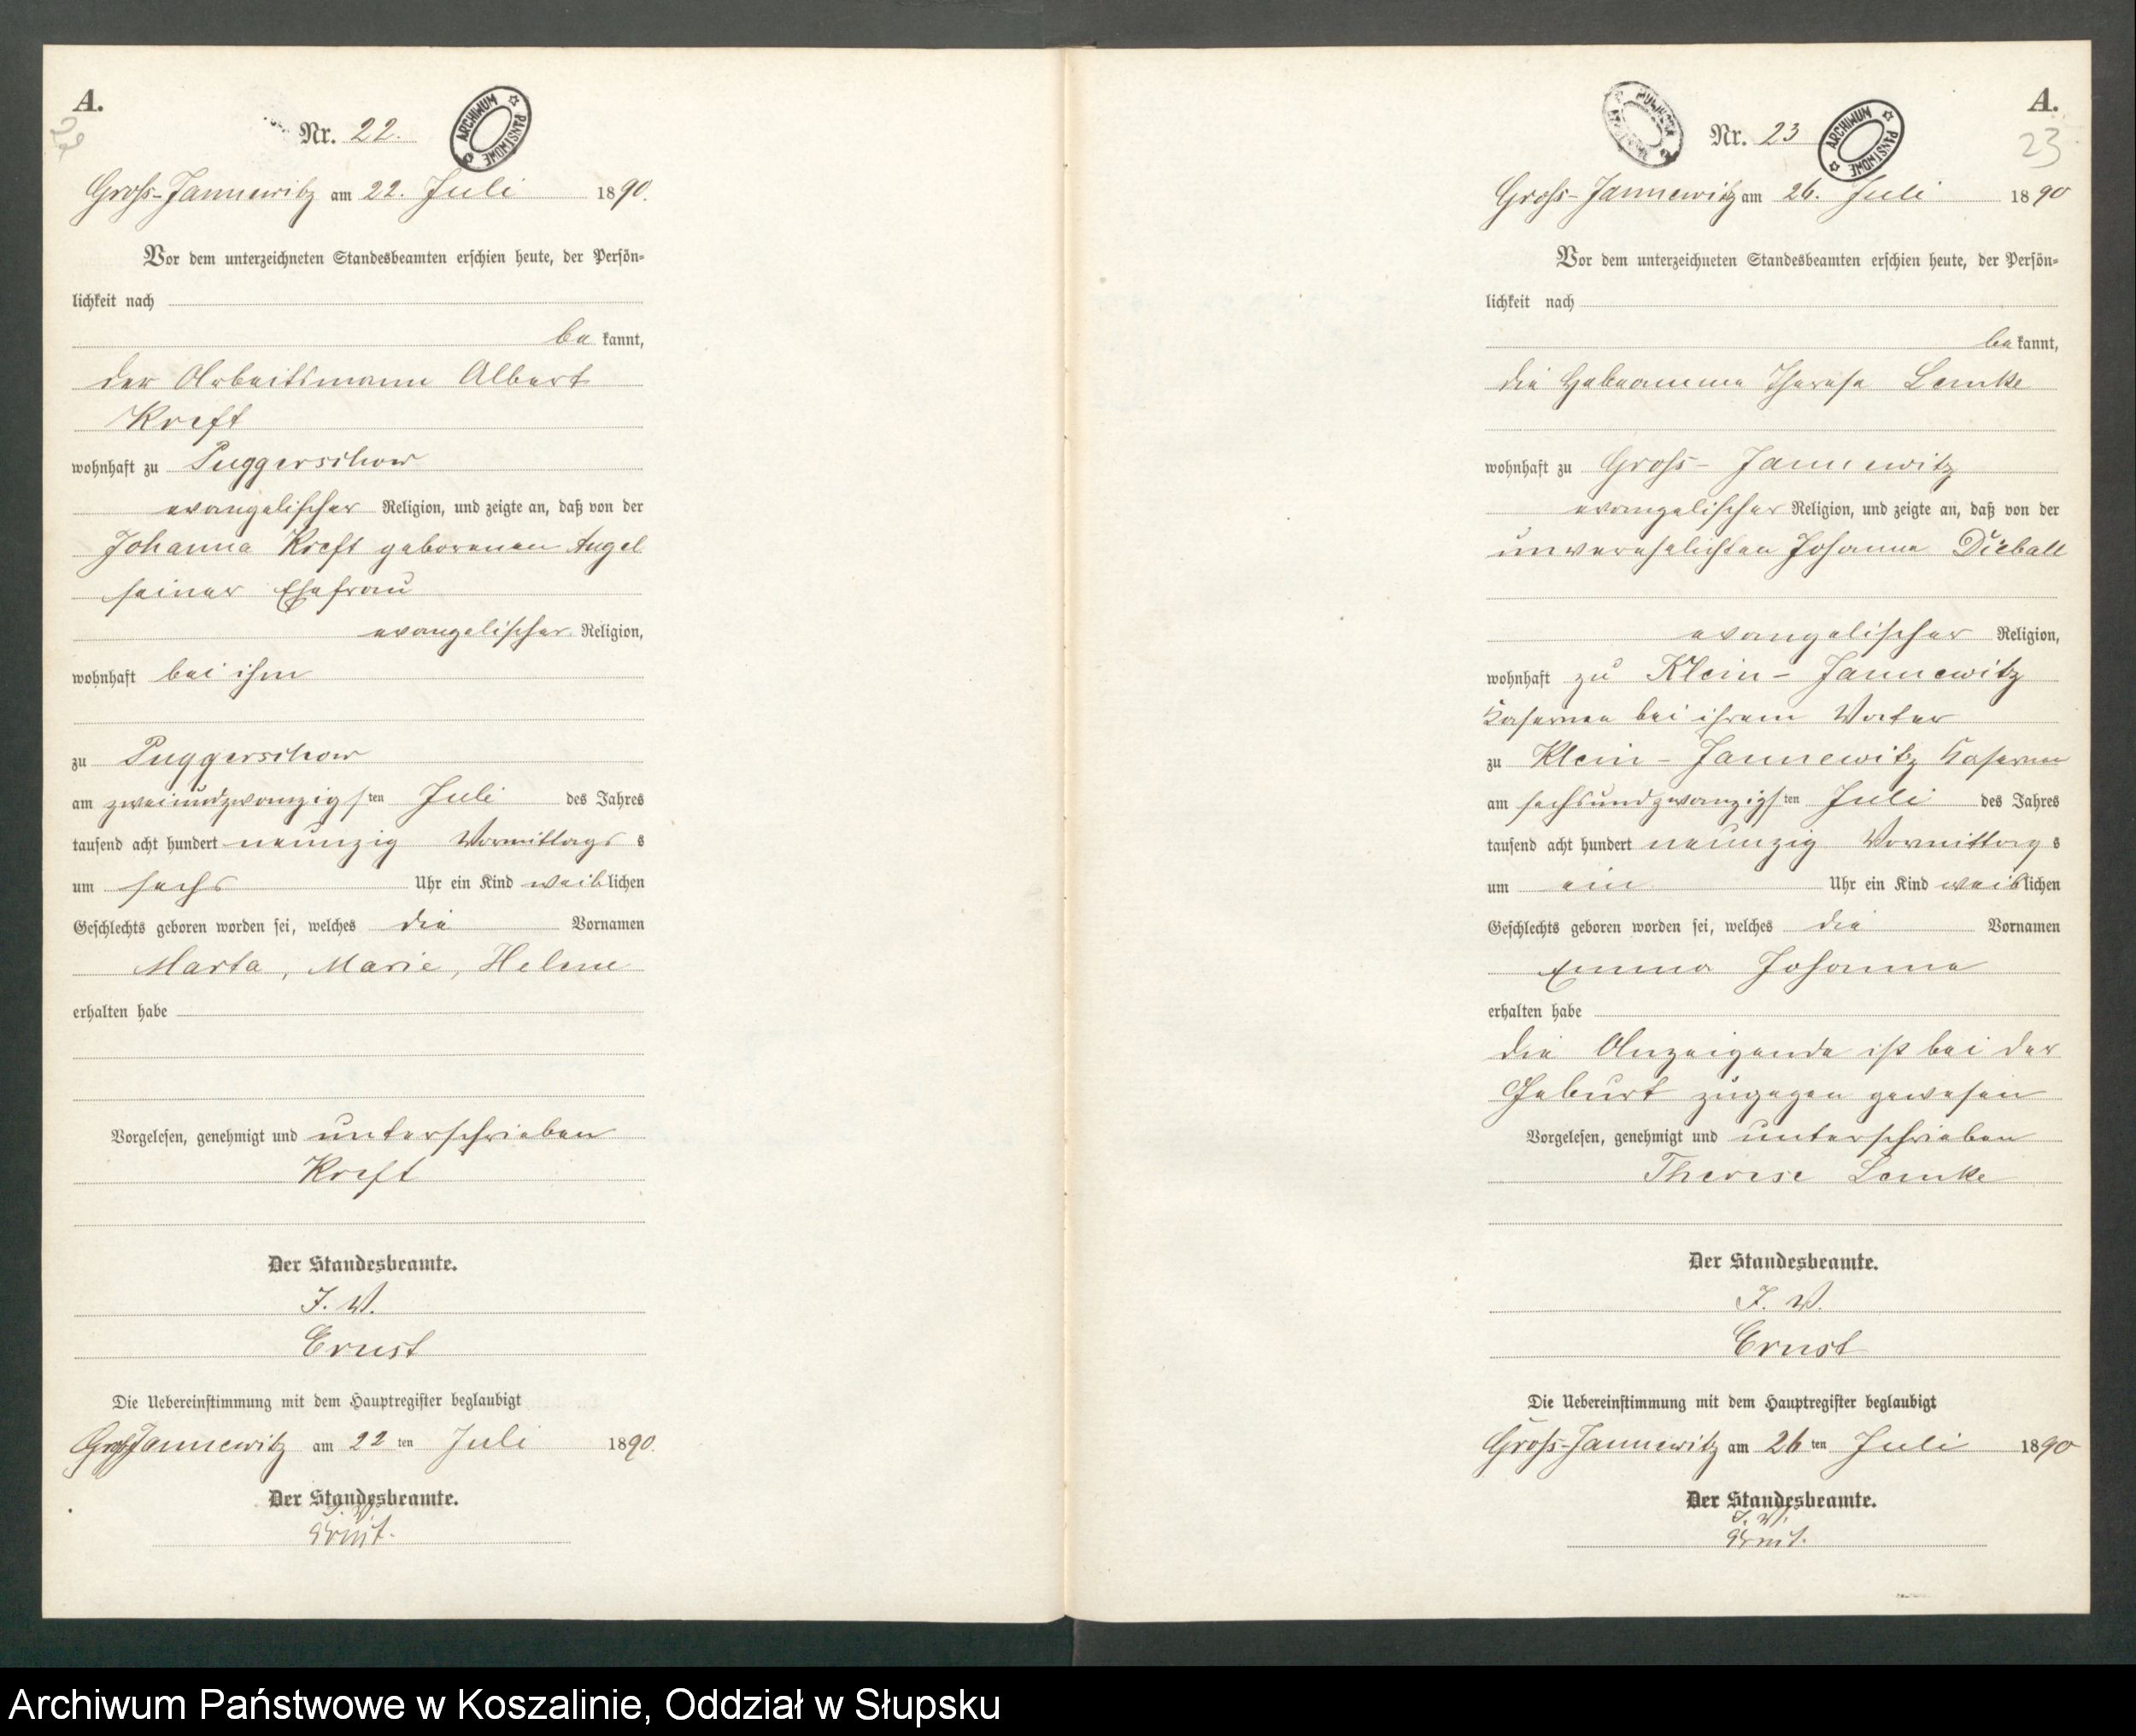 A.
Nr. 22.
ARCHIWUM PAŃSTWOWE
Gross-Jannewitz am 22. Juli 1890.
Vor dem unterzeichneten Standesbeamten erschien heute, der Persön-
lichkeit nach
be kannt,
der Arbeitsmann Albert
Kreft
wohnhaft zu Puggerschow
evangelischer Religion, und zeigte an, daß von der
Johanna Kreft geborenen Angel
seiner Ehefrau
evangelischer Religion,
wohnhaft bei ihm
zu Puggerschow
am zweiundzwanzigsten Juli des Jahres
tausend acht hundert neunzig Vormittags s
um sechs Uhr ein Kind weiblichen
Geschlechts geboren worden sei, welches die Vornamen
Marta, Marie, Helene
erhalten habe
Vorgelesen, genehmigt und unterschrieben
Kreft
Der Standesbeamte.
J. V.
Ernst
Die Uebereinstimmung mit dem Hauptregister beglaubigt
Gross Jannewitz am 22 ten Juli 1890.
Der Standesbeamte.
J. V.
Ernst.
A.
Nr. 23
ARCHIWUM PAŃSTWOWE
23
Gross-Jannewitz am 26. Juli 1890
Vor dem unterzeichneten Standesbeamten erschien heute, der Persön-
lichkeit nach
be kannt,
die Hebeamme Therese Lemke
wohnhaft zu Gross-Jannewitz
evangelischer Religion, und zeigte an, daß von der
unverehelichten Johanna Dieball
evangelischer Religion,
wohnhaft zu Klein-Jannewitz
Kasernen bei ihrem Vater
zu Klein-Jannewitz Kasernen
am sechsundzwanzigsten Juli des Jahres
tausend acht hundert neunzig Vormittag s
um ein Uhr ein Kind weiblichen
Geschlechts geboren worden sei, welches die Vornamen
Emma Johanna
erhalten habe
Die Anzeigende ist bei der
Geburt zugegen gewesen
Vorgelesen, genehmigt und unterschrieben
Therese Lemke
Der Standesbeamte.
J. V.
Ernst
Die Uebereinstimmung mit dem Hauptregister beglaubigt
Gross-Jannewitz am 26 ten Juli 1890
Der Standesbeamte.
J. V.
Ernst.
Archiwum Państwowe w Koszalinie, Oddział w Słupsku